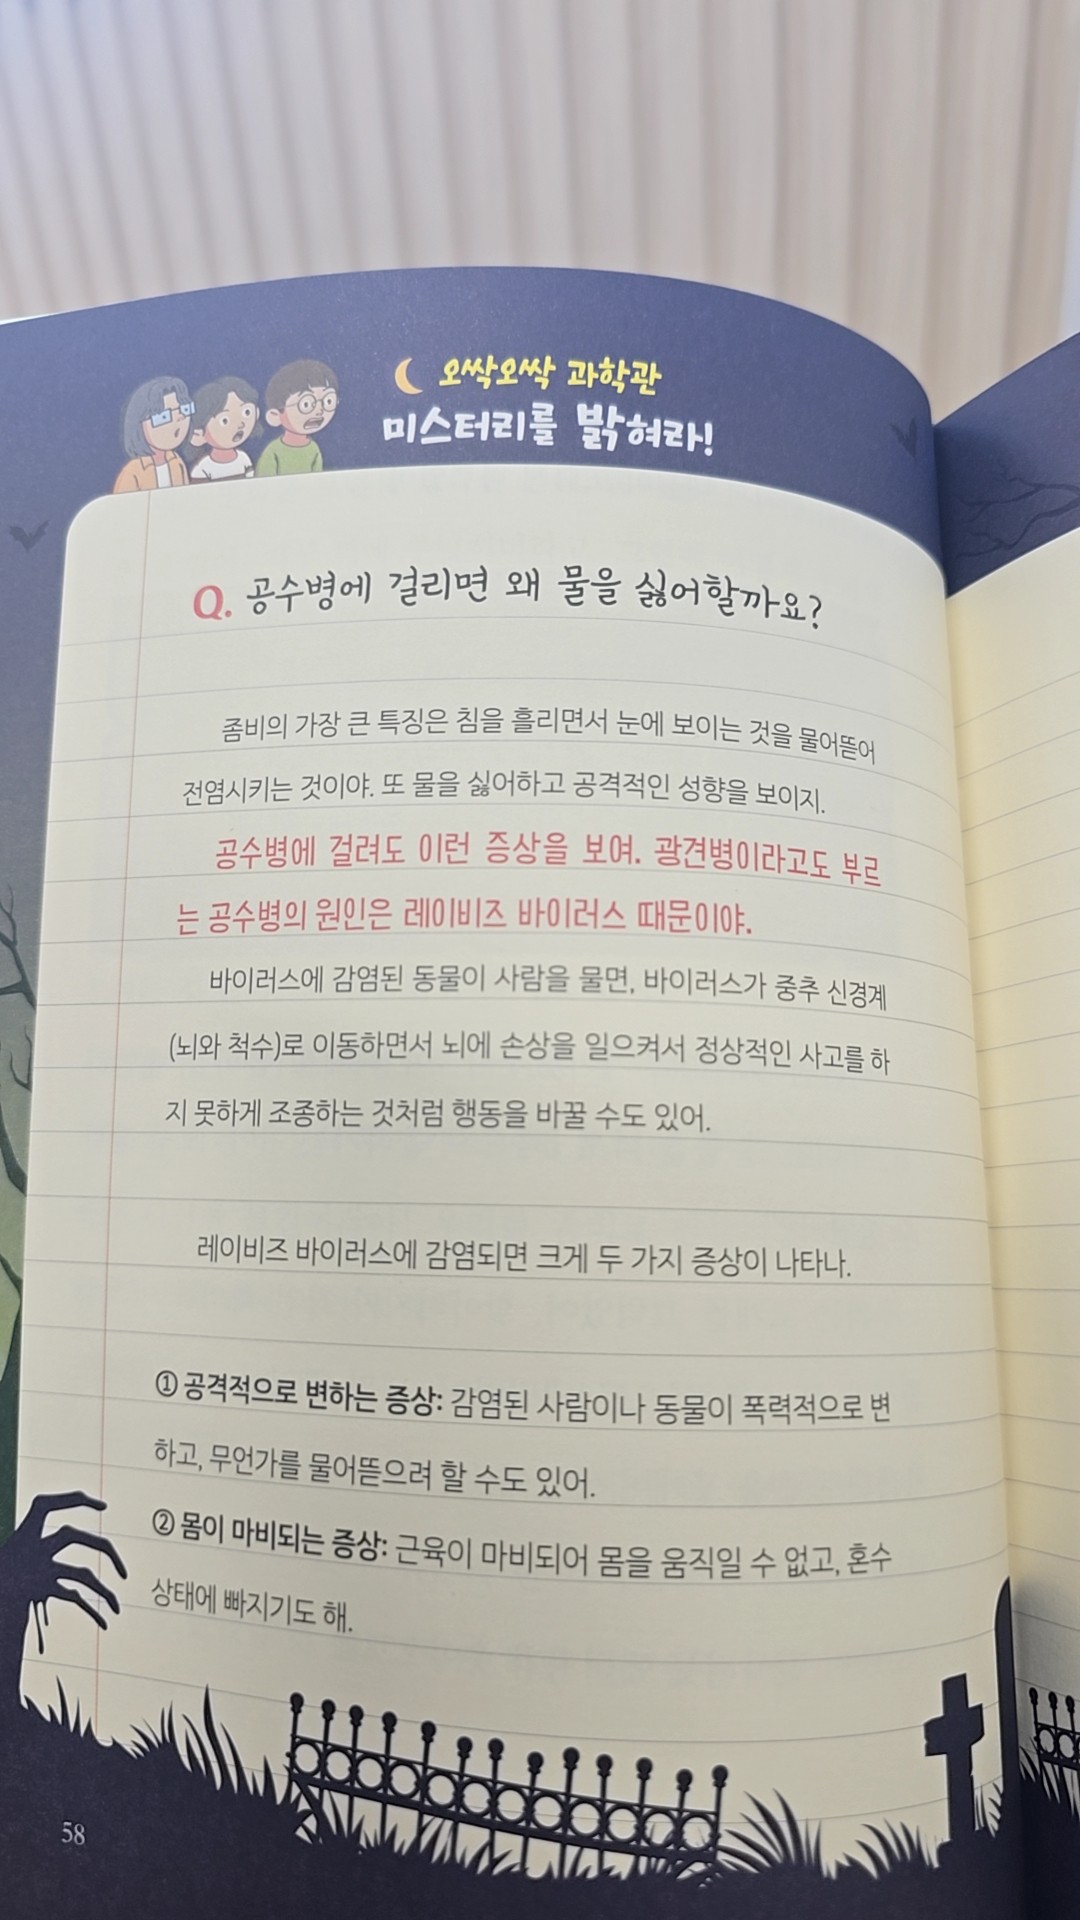 오싹오싹 과학관
미스터리를 밝혀라!
Q. 공수병에 걸리면 왜 물을 싫어할까요?
좀비의 가장 큰 특징은 침을 흘리면서 눈에 보이는 것을 물어뜯어
전염시키는 것이야. 또 물을 싫어하고 공격적인 성향을 보이지.
공수병에 걸려도 이런 증상을 보여. 광견병이라고도 부르
는 공수병의 원인은 레이비즈 바이러스 때문이야.
바이러스에 감염된 동물이 사람을 물면, 바이러스가 중추 신경계
(뇌와 척수)로 이동하면서 뇌에 손상을 일으켜서 정상적인 사고를 하
지 못하게 조종하는 것처럼 행동을 바꿀 수도 있어.
레이비즈 바이러스에 감염되면 크게 두 가지 증상이 나타나.
① 공격적으로 변하는 증상: 감염된 사람이나 동물이 폭력적으로 변
하고, 무언가를 물어뜯으려 할 수도 있어.
② 몸이 마비되는 증상: 근육이 마비되어 몸을 움직일 수 없고, 혼수
상태에 빠지기도 해.
58